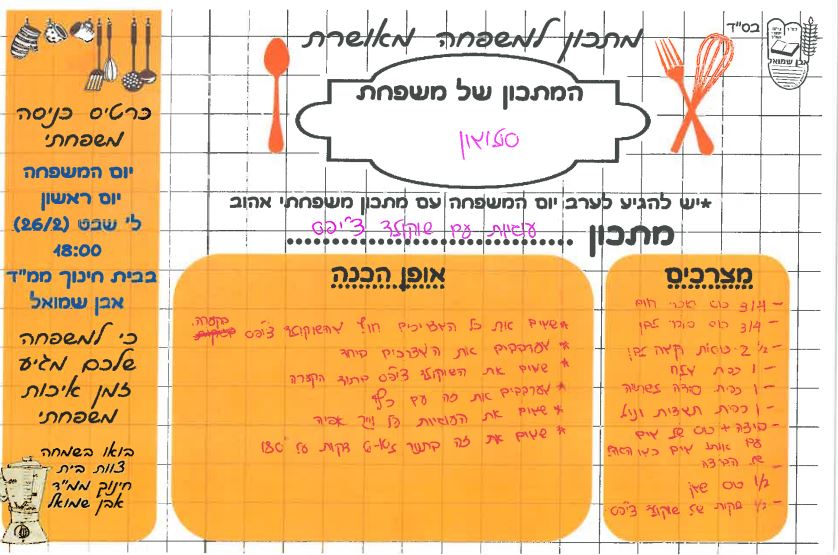 בס"ד
אבן שמואל
מתכון למשפחה מאושרת
המתכון של משפחת
*יש להגיע לערב יום המשפחה עם מתכון משפחתי אהוב
מתכון עוגיות עם שוקולד צ'יפס
מצרכים
- 3/4 כוס סוכר חום
- 3/4 כוס סוכר לבן
- 2 1/2 כוסות קמח לבן
- 1 כפית מלח
- 1 כפית סודה לשתיה
- 1 כפית תמצית וניל
- ביצה + כוס של מים
עם אותו מים כמו האורך
של הביצה
1/2 כוס שמן
- 1/2 שקית של שוקולד צ'יפס
אופן הכנה
* שמים את כל המצרכים חוץ מהשוקולד צ'יפס בקערה.
* מערבבים את המצרכים ביחד
* שמים את השוקולד צ'יפס בתוך הקערה
* מערבבים את זה עם כף
* שמים את העוגיות על נייר אפיה
* שמים את זה בתנור דקות על 180°
כרטיס כניסה
משפחתי
יום המשפחה
יום ראשון
ל' שבט (26/2)
18:00
בבית חינוך ממ"ד
אבן שמואל
כי למשפחה
שלכם מגיע
זמן איכות
משפחתי
בואו בשמחה
צוות בית
חינוך ממ"ד
אבן שמואל